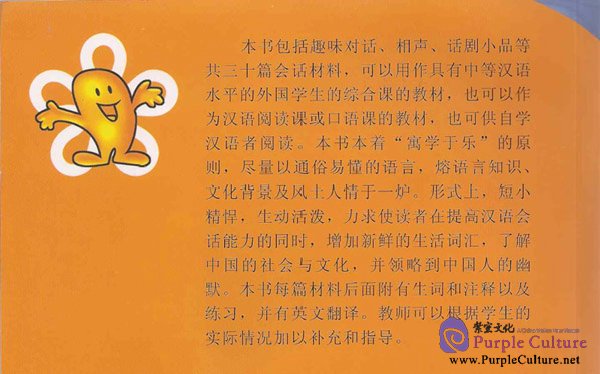 本书包括趣味对话、相声、话剧小品等
共三十篇会话材料，可以用作具有中等汉语
水平的外国学生的综合课的教材，也可以作
为汉语阅读课或口语课的教材，也可供自学
汉语者阅读。本书本着“寓学于乐”的原
则，尽量以通俗易懂的语言，熔语言知识、
文化背景及风土人情于一炉。形式上，短小
精悍，生动活泼，力求使读者在提高汉语会
话能力的同时，增加新鲜的生活词汇，了解
中国的社会与文化，并领略到中国人的幽
默。本书每篇材料后面附有生词和注释以及
练习，并有英文翻译。教师可以根据学生的
实际情况加以补充和指导。
紫室文化
Purple Culture
www.PurpleCulture.net